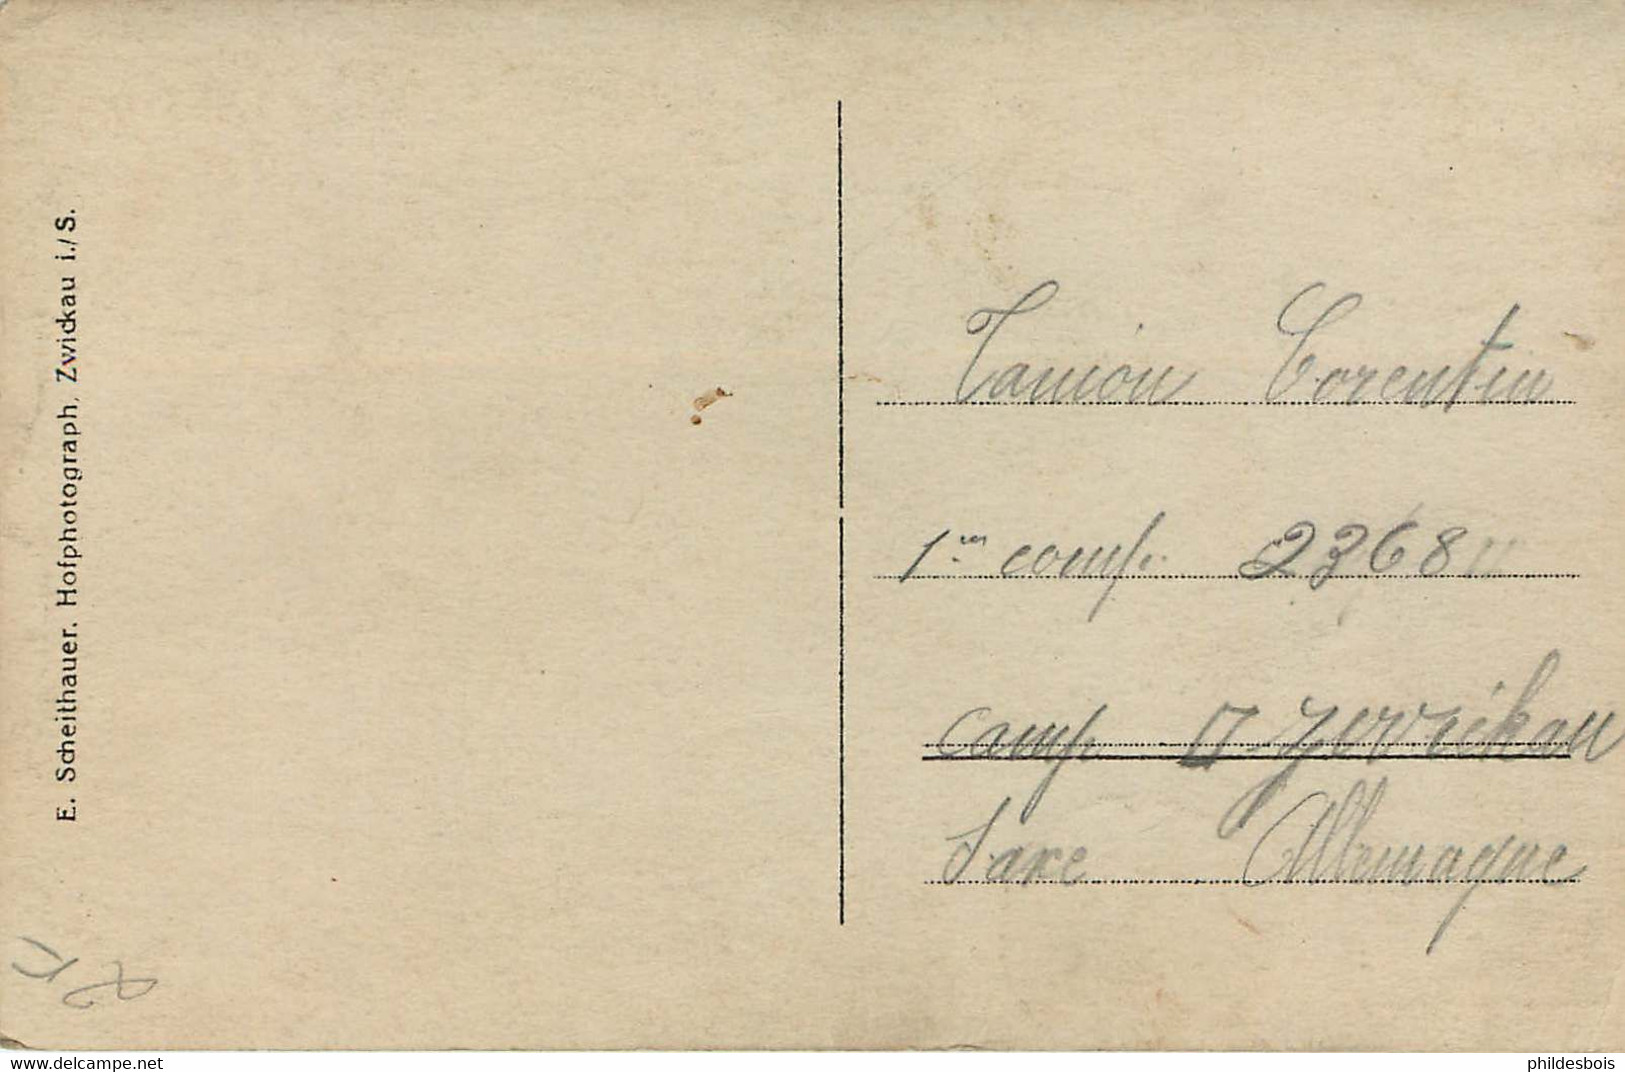 E. Scheithauer. Hofphotograph, Zwickau i./S.
Tanion Corentin
1re comp. 2368
camp
Saxe Allemagne
www.delcampe.net
phildesbois